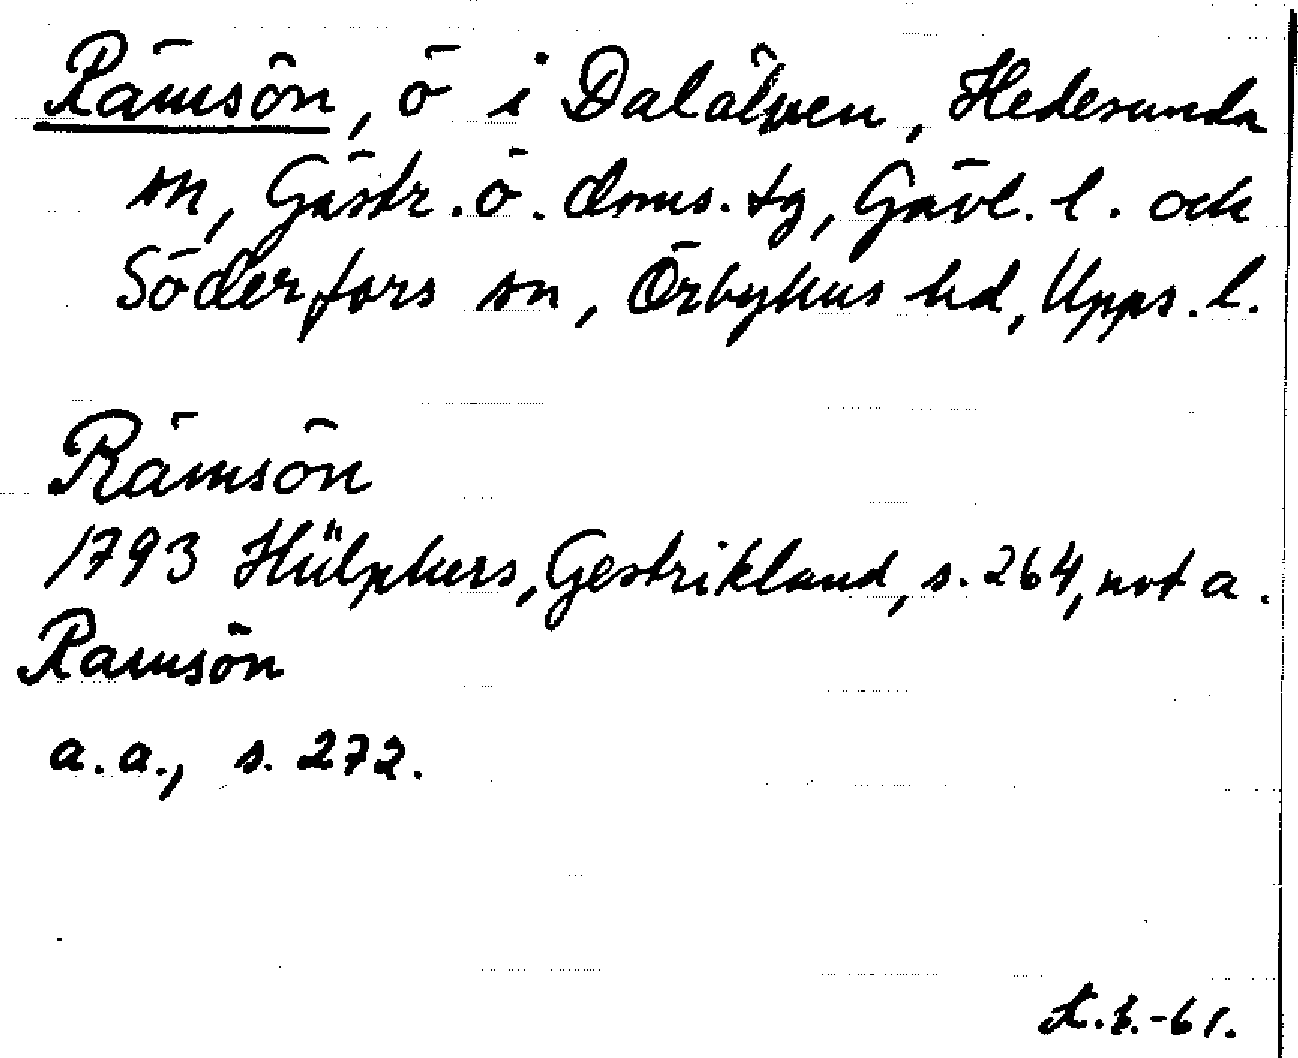 Rämsön, ö i Dalälven, Hedesunda
sn, Gästr. ö. doms. tg, Gävl. l. och
Söderfors sn, Örbyhus hd, Upps. l.
Rämsön
1793 Hülphers, Gestrikland, s. 264, not a.
Ramsön
a.a., s. 272.
-61.